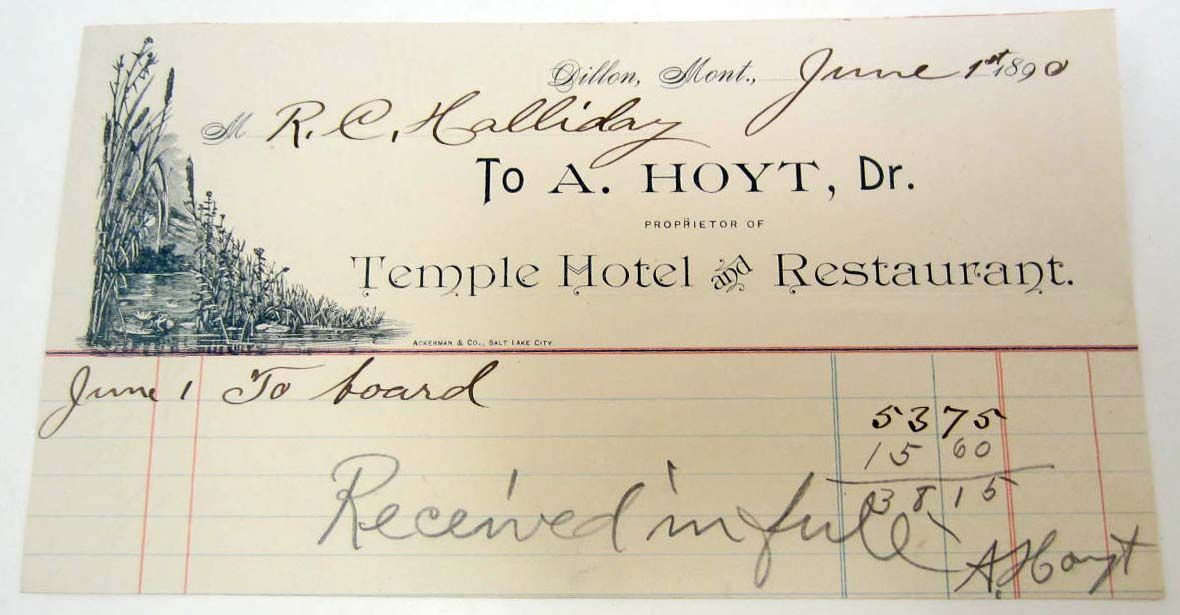 Dillon, Mont., June 1st 1890
M R. C. Halliday
To A. HOYT, Dr.
PROPRIETOR OF
Temple Hotel and Restaurant.
ACKERMAN & CO., SALT LAKE CITY
June 1 To board
53 75
15 60
38 15
Received in full
A. Hoyt